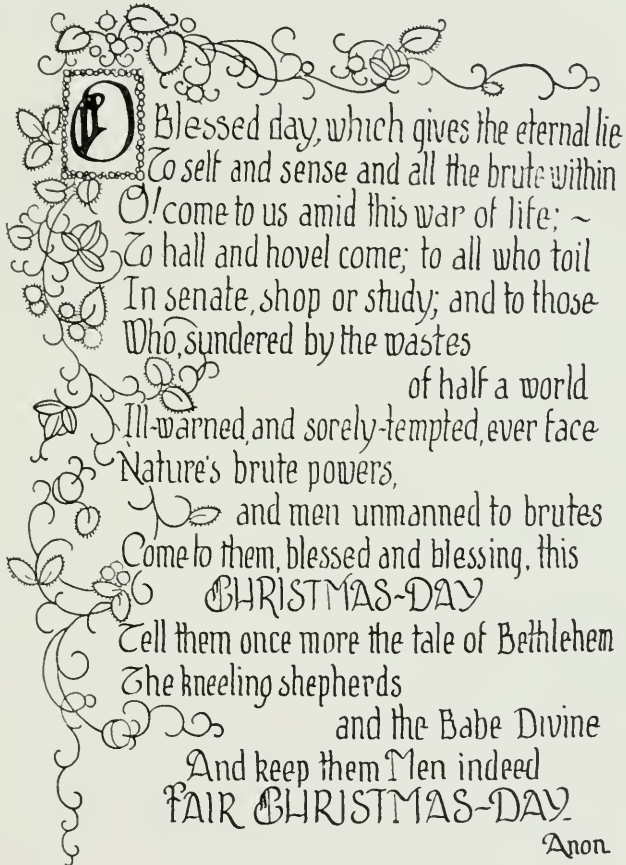 O Blessed day, which gives the eternal lie
To self and sense and all the brute within
O! come to us amid this war of life; ~
To hall and hovel come; to all who toil
In senate, shop or study; and to those
Who, sundered by the wastes
of half a world
Ill-warned, and sorely-tempted, ever face
Nature's brute powers,
and men unmanned to brutes
Come to them, blessed and blessing, this
CHRISTMAS~DAY
Tell them once more the tale of Bethlehem
The kneeling shepherds
and the Babe Divine
And keep them Men indeed
FAIR CHRISTMAS~DAY.
Anon